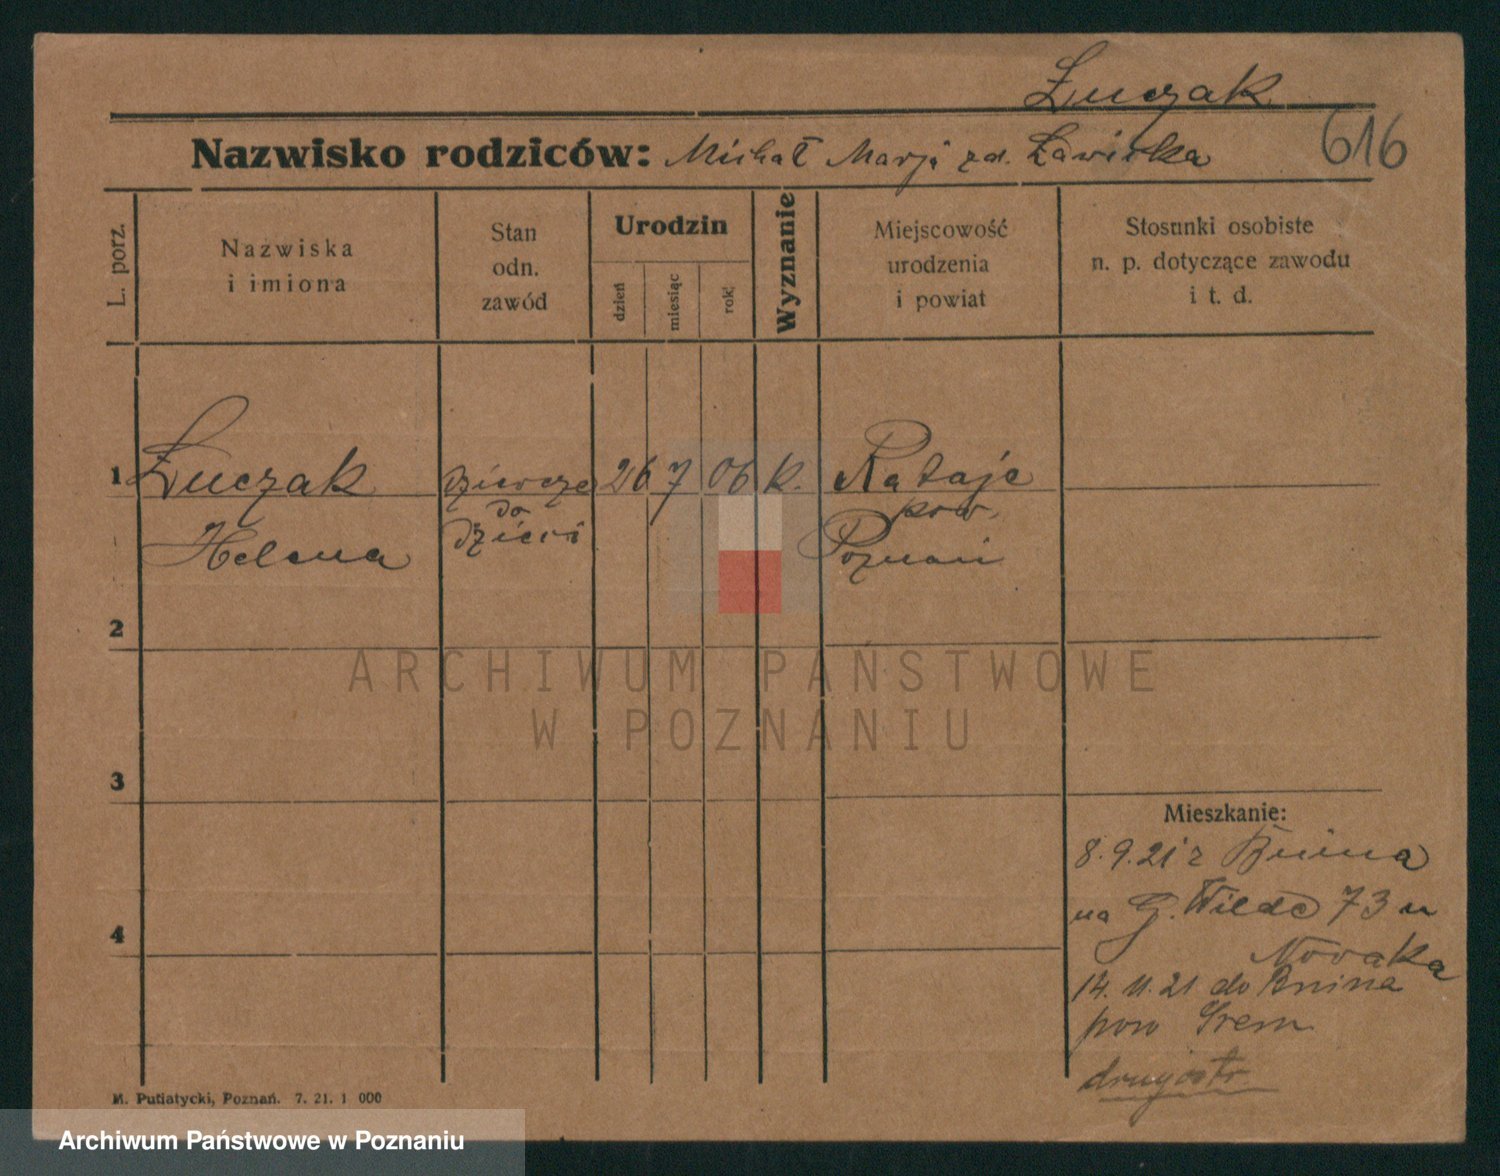 Łuczak
Nazwisko rodziców: Michał Marja zd. Zawicka
616
L. porz.
Nazwiska
i imiona
Stan
odn.
zawód
Urodzin
dzień
miesiąc
rok
Wyznanie
Miejscowość
urodzenia
i powiat
Stosunki osobiste
n. p. dotyczące zawodu
i t. d.
1 Łuczak dziewczę 26 7 06 k. Rataje
do pow.
Helena dzieci Poznań
2
ARCHIWUM PAŃSTWOWE
W POZNANIU
3
Mieszkanie:
8.9.21 z Bnina
na G. Wilde 73 u
4
Nowaka
14.11.21 do Bnina
pow Śrem
M. Putiatycki, Poznań. 7. 21. 1 000
Archiwum Państwowe w Poznaniu